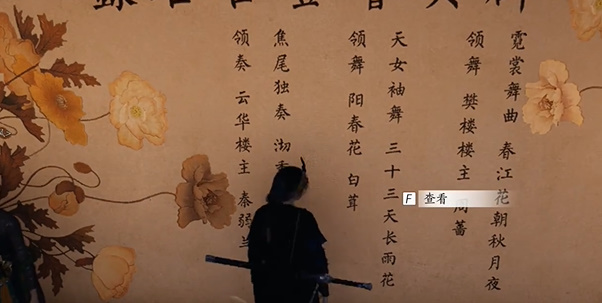 霓裳舞曲 春江花朝秋月夜
领舞 樊楼楼主
天女袖舞 三十三天长雨花
领舞 阳春花 白茸
焦尾独奏 沏
领奏 云华楼主 秦弱兰
F 查看